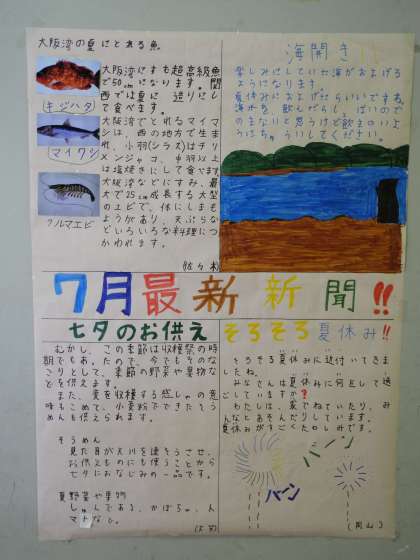 大阪湾の夏にとある魚
大阪湾にすむ超高級魚
で50cmになります。関
西では夏に造りにし
て食べます。
キジハタ
大阪湾でとれるマイワ
シは、西の地方で生ま
れ、小羽(シラス)はチリ
メンジャコ、中羽以上
は塩焼きにして食べます
マイワシ
大阪湾などにすみ、最
大で25cm成長する大型
のエビで、体にしまも
ようがあり、天ぷらな
どいろいろな料理につ
かわれます。
クルマエビ
(佐々木)
海開き
楽しみにしていた海がおよげる
ようになります
夏休みにおよげたらいいですね
7月最新新聞!!
七夕のお供え
むかし、この季節は収穫祭の時
期でもあったので、今でもそのな
ごりとして、季節の野菜や果物な
どを供えます。
また、麦を収穫する感しゃの意
味もこめて、小麦粉でできたそう
めんも供えられます。
そうめん
見た目が天川を連そうさせ、
お供えものにも使うことから
七夕におなじみの一品です。
夏野菜や果物
しゅんである、かぼちゃ、ト
マトなど。
そろそろ夏休み!!
そろそろ夏休みに近付いてきま
したね。
みなさんは夏休みに何をして過
ごしていますか?
わたしは、家でねていたり、み
んなとあそんだりしています。
夏休みがすごくたのしみです。
バーン
バーン
(岡山)